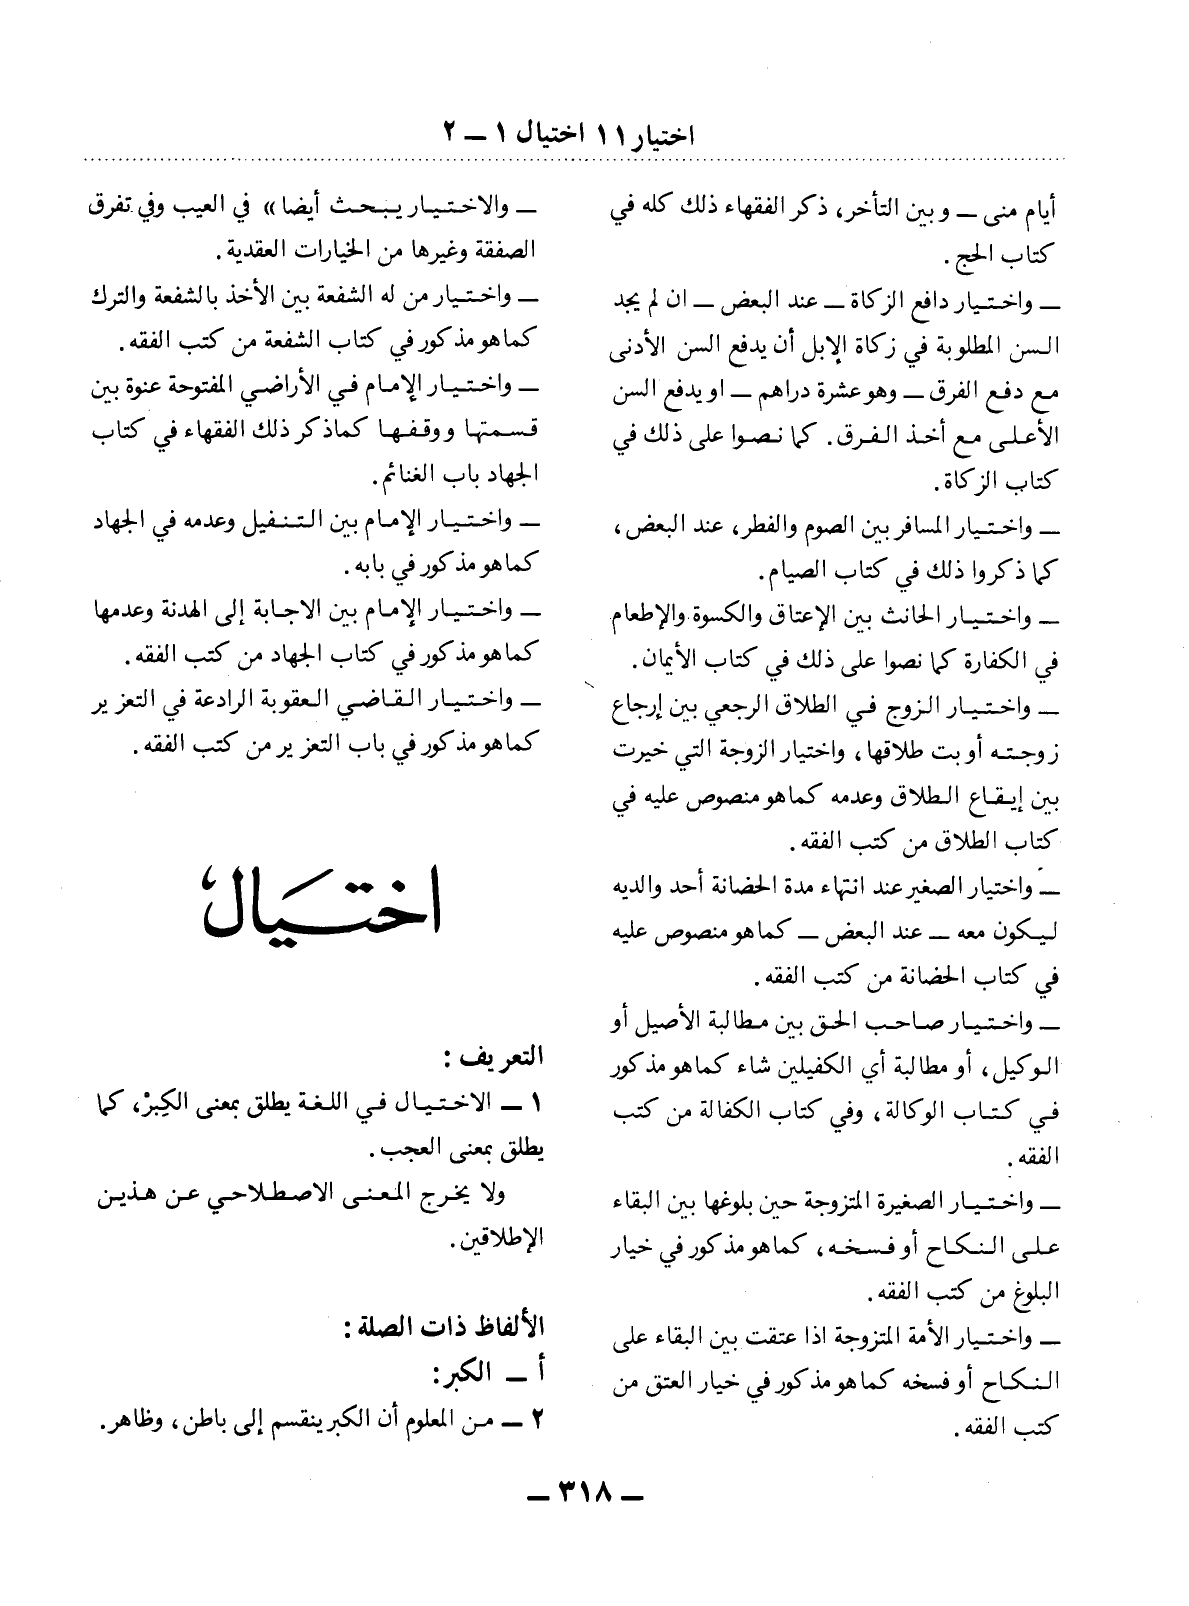 اختيار ١١ اختيال ١ ــ ٢
أيام منى ــ وبين التأخر، ذكر الفقهاء ذلك كله في
كتاب الحج .
ــ واختيار دافع الزكاة ــ عند البعض ــ ان لم يجد
السن المطلوبة في زكاة الإبل أن يدفع السن الأدنى
مع دفع الفرق ــ وهو عشرة دراهم ــ او يدفع السن
الأعلى مع أخذ الفرق. كما نصوا على ذلك في
كتاب الزكاة.
ــ واختيار المسافر بين الصوم والفطر، عند البعض،
كما ذكروا ذلك في كتاب الصيام.
ــ واختيار الحانث بين الإعتاق والكسوة والإطعام
في الكفارة كما نصوا على ذلك في كتاب الأيمان.
ــ واختيار الزوج في الطلاق الرجعي بين إرجاع
زوجته أو بت طلاقها، واختيار الزوجة التي خيرت
بين إيقاع الطلاق وعدمه كما هو منصوص عليه في
كتاب الطلاق من كتب الفقه.
ــ واختيار الصغير عند انتهاء مدة الحضانة أحد والديه
ليكون معه ــ عند البعض ــ كما هو منصوص عليه
في كتاب الحضانة من كتب الفقه.
ــ واختيار صاحب الحق بين مطالبة الأصيل أو
الوكيل، أو مطالبة أي الكفيلين شاء كما هو مذكور
في كتاب الوكالة، وفي كتاب الكفالة من كتب
الفقه.
ــ واختيار الصغيرة المتزوجة حين بلوغها بين البقاء
على النكاح أو فسخه، كما هو مذكور في خيار
البلوغ من كتب الفقه.
ــ واختيار الأمة المتزوجة اذا عتقت بين البقاء على
النكاح أو فسخه كما هو مذكور في خيار العتق من
كتب الفقه.
ــ والاختيار يبحث أيضا» في العيب وفي تفرق
الصفقة وغيرها من الخيارات العقدية.
ــ واختيار من له الشفعة بين الأخذ بالشفعة والترك
كما هو مذكور في كتاب الشفعة من كتب الفقه.
ــ واختيار الإمام في الأراضي المفتوحة عنوة بين
قسمتها ووقفها كما ذكر ذلك الفقهاء في كتاب
الجهاد باب الغنائم.
ــ واختيار الإمام بين التنفيل وعدمه في الجهاد
كما هو مذكور في بابه.
ــ واختيار الإمام بين الاجابة إلى الهدنة وعدمها
كما هو مذكور في كتاب الجهاد من كتب الفقه.
ــ واختيار القاضي العقوبة الرادعة في التعزير
كما هو مذكور في باب التعزير من كتب الفقه.
اختيال
التعريف :
١ ــ الاختيال في اللغة يطلق بمعنى الكِبْر، كما
يطلق بمعنى العجب.
ولا يخرج المعنى الاصطلاحي عن هذين
الإطلاقين.
الألفاظ ذات الصلة :
أ ــ الكبر:
٢ ــ من المعلوم أن الكبر ينقسم إلى باطن، وظاهر.
ــ ٣١٨ ــ